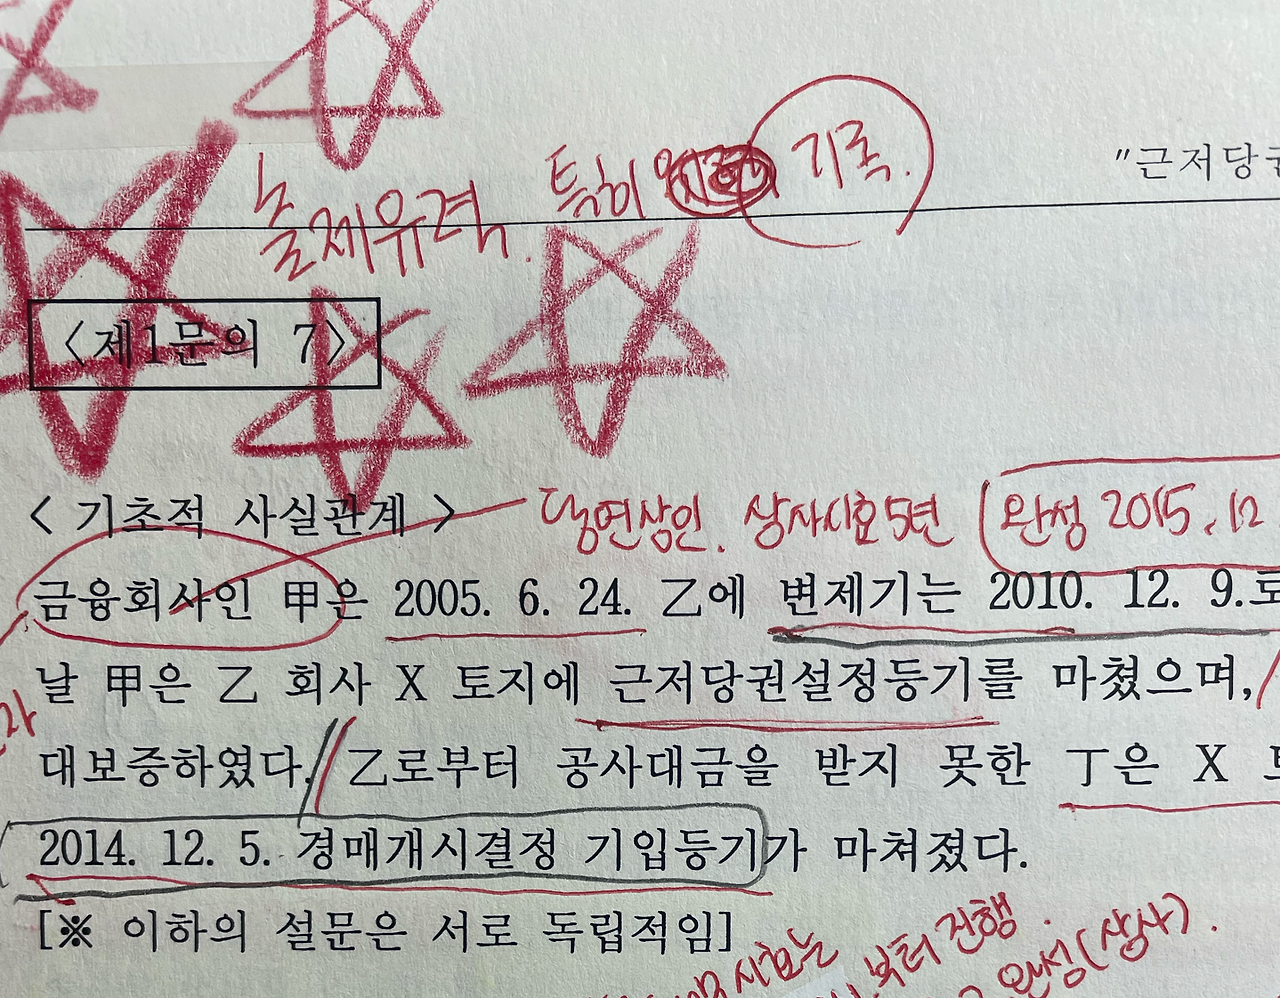 특히 기록.
"근저당권
출제유력.
<제1문의 7>
< 기초적 사실관계 > 당연상인. 상사시효 5년 완성 2015. 12
금융회사인 甲은 2005. 6. 24. 乙에 변제기는 2010. 12. 9.로
날 甲은 乙 회사 X 토지에 근저당권설정등기를 마쳤으며,
대보증하였다. 乙로부터 공사대금을 받지 못한 丁은 X
2014. 12. 5. 경매개시결정 기입등기가 마쳐졌다.
[※ 이하의 설문은 서로 독립적임]
시효는 부터 진행.
완성(상사).